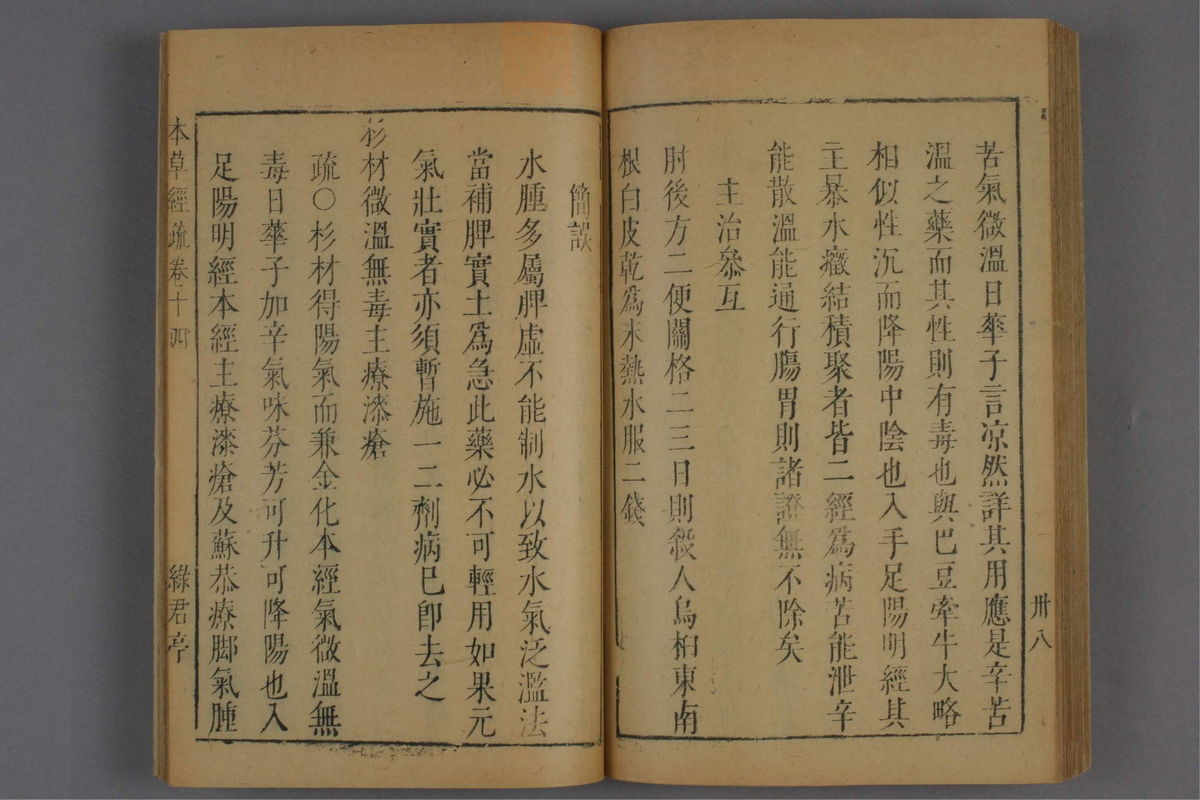 苦氣微溫日華子言凉然詳其用應是辛苦
溫之藥而其性則有毒也與巴豆牽牛大略
相似性沉而降陽中陰也入手足陽明經其
主暴水癥結積聚者皆二經爲病苦能泄辛
能散溫能通行腸胃則諸證無不除矣
主治叅互
肘後方二便關格二三日則殺人烏桕東南
根白皮乾爲末熱水服二錢
卅八
簡誤
水腫多屬脾虛不能制水以致水氣泛濫法
當補脾實土爲急此藥必不可輕用如果元
氣壯實者亦須暫施一二劑病已卽去之
杉材微溫無毒主療漆瘡
疏○杉材得陽氣而兼金化本經氣微溫無
毒日華子加辛氣味芬芳可升可降陽也入
足陽明經本經主療漆瘡及蘇恭療脚氣腫
本草經疏卷十四
綠君亭